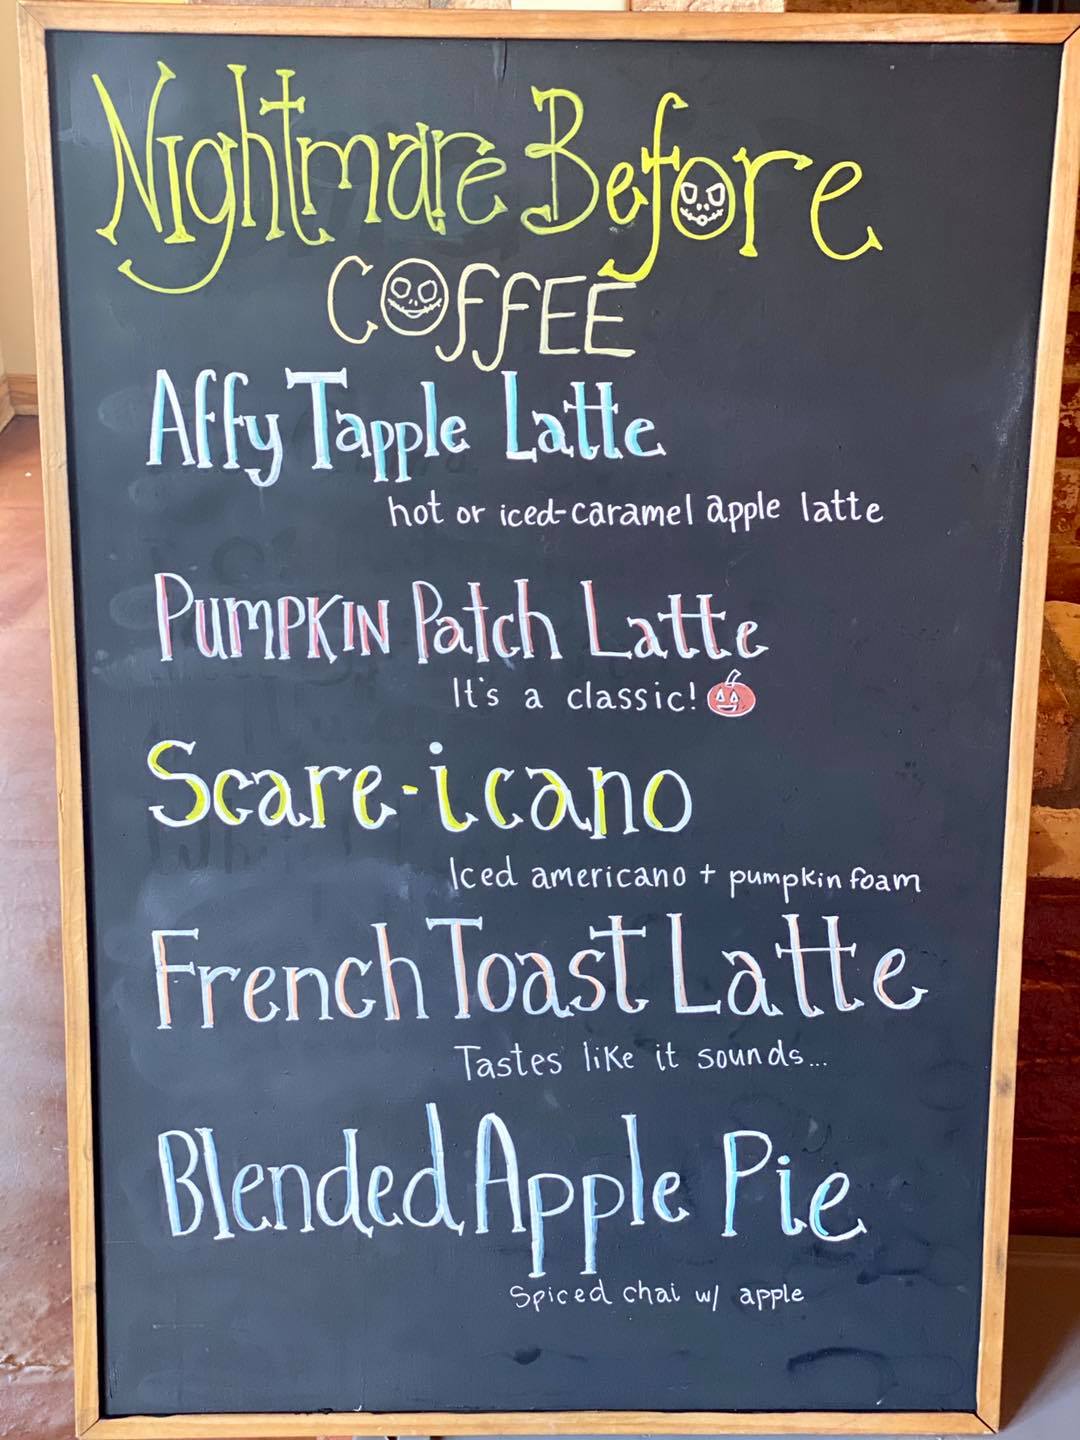 Nightmare Before
COFFEE
Affy Tapple Latte
hot or iced-caramel apple latte
PUMPKIN Patch Latte
It's a classic!
Scare-icano
Iced americano + pumpkin foam
French Toast Latte
Tastes like it sounds...
Blended Apple Pie
Spiced chai w/ apple